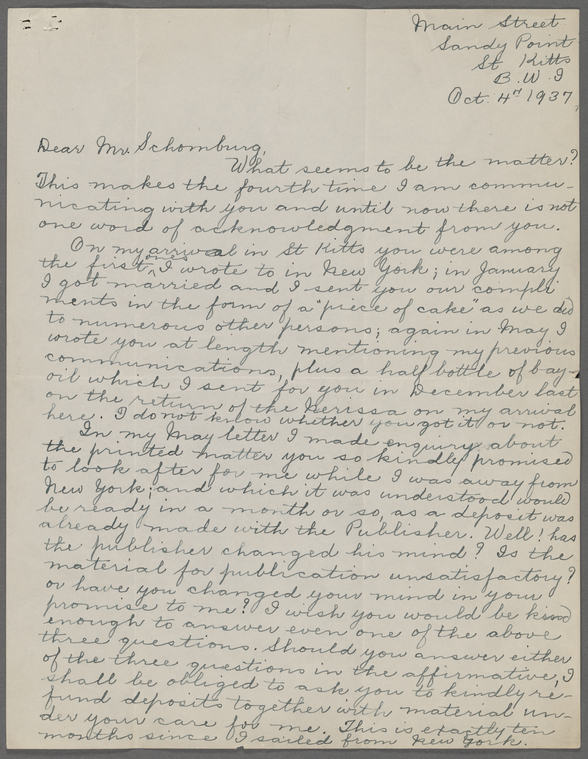 Main Street
Sandy Point
St Kitts
B.W.I
Oct. 4th 1937
Dear Mr. Schomburg,
What seems to be the matter?
This makes the fourth time I am commu-
nicating with you and until now there is not
one word of acknowledgment from you.
On my arrival in St Kitts you were among
the first ones I wrote to in New York; in January
I got married and I sent you our compli
ments in the form of a "piece of cake" as we did
to numerous other persons; again in May I
wrote you at length mentioning my previous
communications, plus a half bottle of bay-
oil which I sent for you in December last
on the return of the Nerissa on my arrival
here. I do not know whether you got it or not.
In my May letter I made enquiry about
the printed matter you so kindly promised
to look after for me while I was away from
New York; and which it was understood would
be ready in a month or so, as a deposit was
already made with the Publisher. Well! has
the publisher changed his mind? Is the
material for publication unsatisfactory?
or have you changed your mind in your
promise to me? I wish you would be kind
enough to answer even one of the above
three questions. Should you answer either
of the three questions in the affirmative, I
shall be obliged to ask you to kindly re-
fund deposits together with material un-
der your care for me. This is exactly ten
months since I sailed from New York.